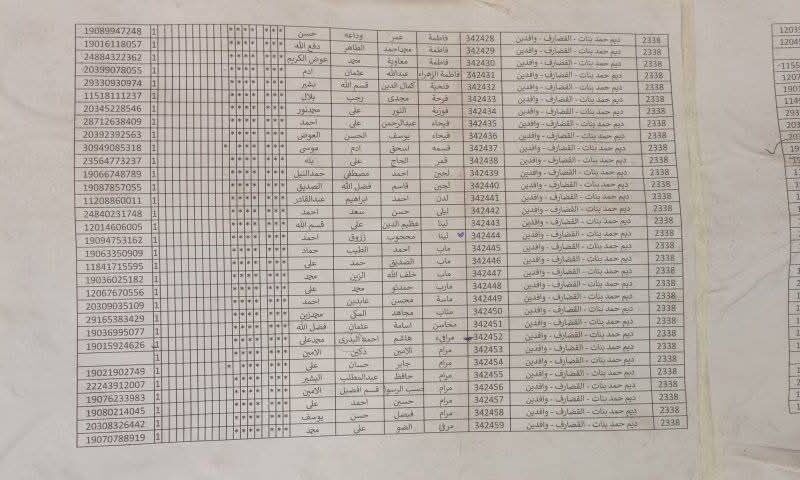 2338 ديم حمد بنات - القضارف - وافدين 342428 فاطمة عمر وداعه حسن *** **** 1 19089947248
2338 ديم حمد بنات - القضارف - وافدين 342429 فاطمة محمداحمد الطاهر دفع الله *** **** 1 19016118057
2338 ديم حمد بنات - القضارف - وافدين 342430 فاطمة معاوية محمد عوض الكريم *** **** 1 24884322362
2338 ديم حمد بنات - القضارف - وافدين 342431 فاطمة الزهراء عبدالله عثمان ادم *** **** 1 20399078055
2338 ديم حمد بنات - القضارف - وافدين 342432 فتحية كمال الدين قسم الله بشير *** **** 1 29330930974
2338 ديم حمد بنات - القضارف - وافدين 342433 فرحة مجدى رجب بلال *** **** 1 11518111237
2338 ديم حمد بنات - القضارف - وافدين 342434 فوزية النور على محمدنور *** **** 1 20345228546
2338 ديم حمد بنات - القضارف - وافدين 342435 فيحاء عبدالرحمن على احمد *** **** 1 28712638409
2338 ديم حمد بنات - القضارف - وافدين 342436 فيحاء يوسف الحسن العوض *** **** 1 20392392563
2338 ديم حمد بنات - القضارف - وافدين 342437 قسمه اسحق ادم موسى *** **** * 1 30949085318
2338 ديم حمد بنات - القضارف - وافدين 342438 قمر الحاج على *** **** 1 23564773237
2338 ديم حمد بنات - القضارف - وافدين 342439 لجين احمد مصطفى حمدالنيل *** **** 1 19066748789
2338 ديم حمد بنات - القضارف - وافدين 342440 لجين قاسم فضل الله الصديق *** **** 1 19087857055
2338 ديم حمد بنات - القضارف - وافدين 342441 لدن احمد ابراهيم عبدالقادر *** **** 1 11208860011
2338 ديم حمد بنات - القضارف - وافدين 342442 ليلى حسن سعد احمد *** **** 1 24840231748
2338 ديم حمد بنات - القضارف - وافدين 342443 لينا عظيم الدين على قسم الله *** **** 1 12014606005
2338 ديم حمد بنات - القضارف - وافدين 342444 لينا محجوب زروق احمد *** **** 1 19094753162
2338 ديم حمد بنات - القضارف - وافدين 342445 ماب احمد الطيب حماد *** **** 1 19063350909
2338 ديم حمد بنات - القضارف - وافدين 342446 ماب الصديق حمد على *** **** 1 11841715595
2338 ديم حمد بنات - القضارف - وافدين 342447 ماب خلف الله الزين محمد *** **** 1 19036025182
2338 ديم حمد بنات - القضارف - وافدين 342448 مارب حمدتو محمد على *** **** 1 12067670556
2338 ديم حمد بنات - القضارف - وافدين 342449 ماسة محسن عابدين احمد *** **** 1 20309035109
2338 ديم حمد بنات - القضارف - وافدين 342450 متاب مجاهد المكى محمدزين *** **** 1 29165383429
2338 ديم حمد بنات - القضارف - وافدين 342451 محاسن اسامة عثمان فضل الله *** **** 1 19036995077
2338 ديم حمد بنات - القضارف - وافدين 342452 مرافىء هاشم احمد البدرى محمدعلى *** **** 1 19015924626
2338 ديم حمد بنات - القضارف - وافدين 342453 مرام الامين دكين الامين *** **** 1
2338 ديم حمد بنات - القضارف - وافدين 342454 مرام جابر حسان على *** **** * 1 19021902749
2338 ديم حمد بنات - القضارف - وافدين 342455 مرام حافظ عبدالمطلب البشير *** **** 1 22243912007
2338 ديم حمد بنات - القضارف - وافدين 342456 مرام حسب الرسول قسم افضيل الامين *** **** 1 19076233983
2338 ديم حمد بنات - القضارف - وافدين 342457 مرام حسين احمد على *** **** 1 19080214045
2338 ديم حمد بنات - القضارف - وافدين 342458 مرام فيصل حسن يوسف *** **** 1 20308326442
2338 ديم حمد بنات - القضارف - وافدين 342459 مرفى الضو على محمد *** **** 1 19070788919